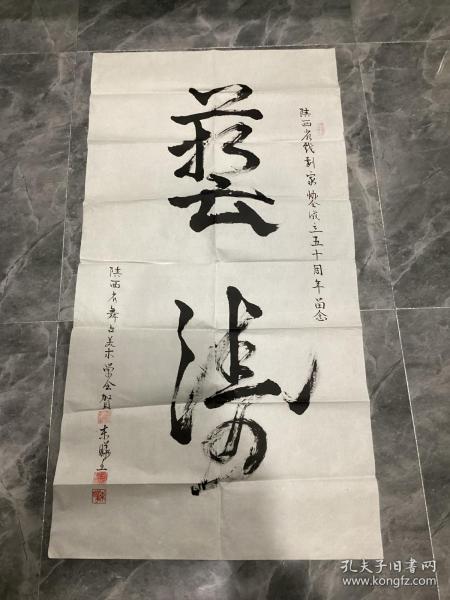 陕西省戏剧家协会成立五十周年留念
藝
涛
陕西省舞台美术学会贺
孔夫子旧书网
www.kongfz.com